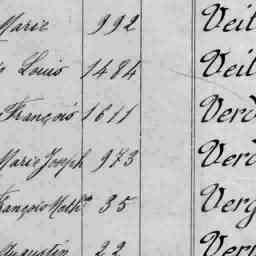 Marie 992 Veil
Louis 1484 Veil
François 1611 Verd
Marie Joseph 973 Verd
François Math. 35 Verg
Augustin 22 Ver